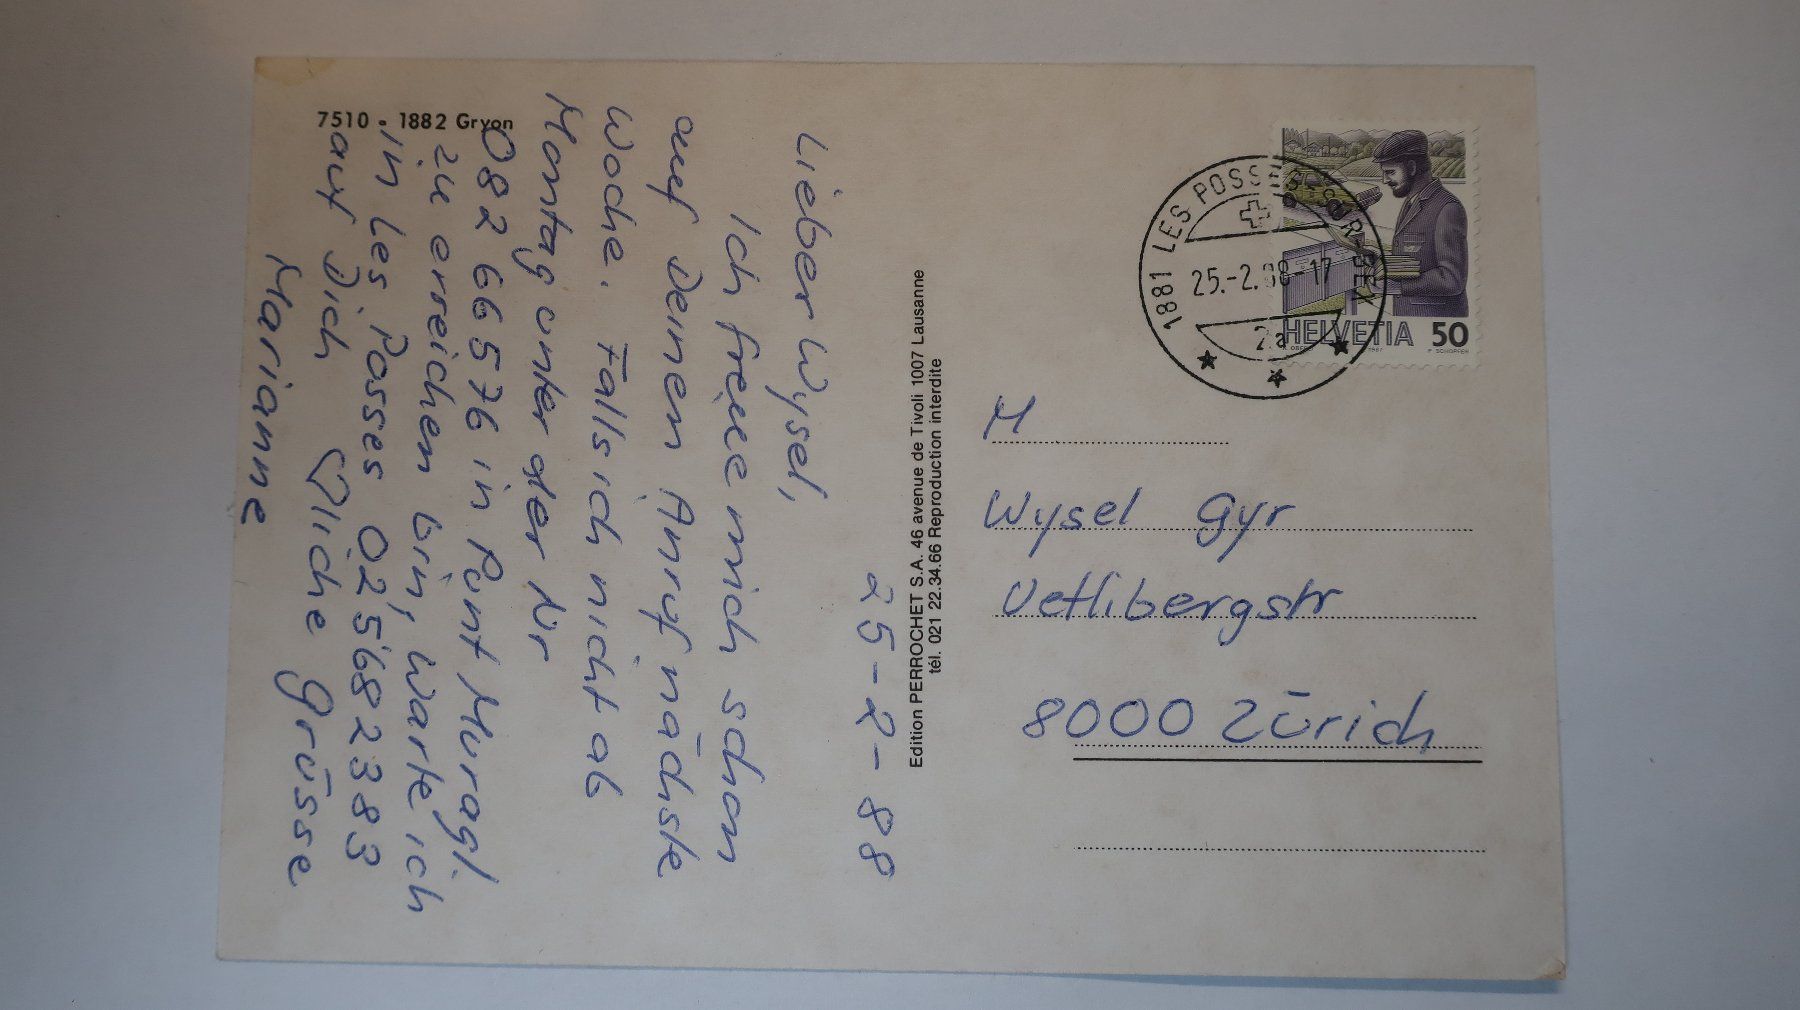 7510 - 1882 Gryon
25-2-88
Lieber Wysel,
Ich freue mich schon
auf Deinen Anruf nächste
Woche. Falls ich nicht ab
Montag unter der Nr
082 66576 in Punt Muragl.
zu erreichen bin, warte ich
in Les Posses 025 682383
auf Dich ♡liche Grüsse
Marianne
Edition PERROCHET S.A. 46 avenue de Tivoli 1007 Lausanne
tél. 021 22.34.66 Reproduction interdite
1881 LES POSSES-SUR-BEX
25.-2.88-17
2a
HELVETIA 50
1987 P. SCHOPFER
H
Wysel Gyr
Uetlibergstr
8000 Zürich